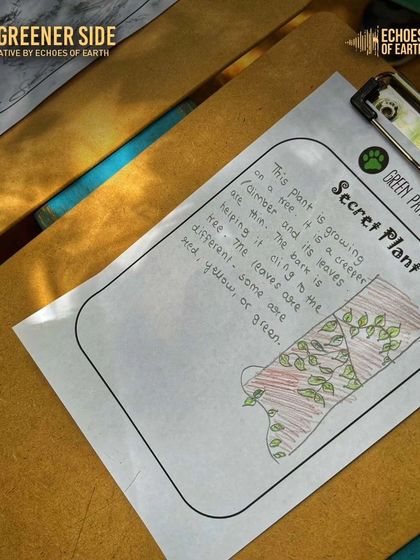 GREENER SIDE
ATIVE BY ECHOES OF EARTH
ECHOES
OF EARTH
GREEN PA
Secret Plant
This plant is growing
on a tree. It is a creeper
/climber and its leaves
are thin. The bark is
helping it cling to the
tree. The leaves are
different - some are
red, yellow, or green.